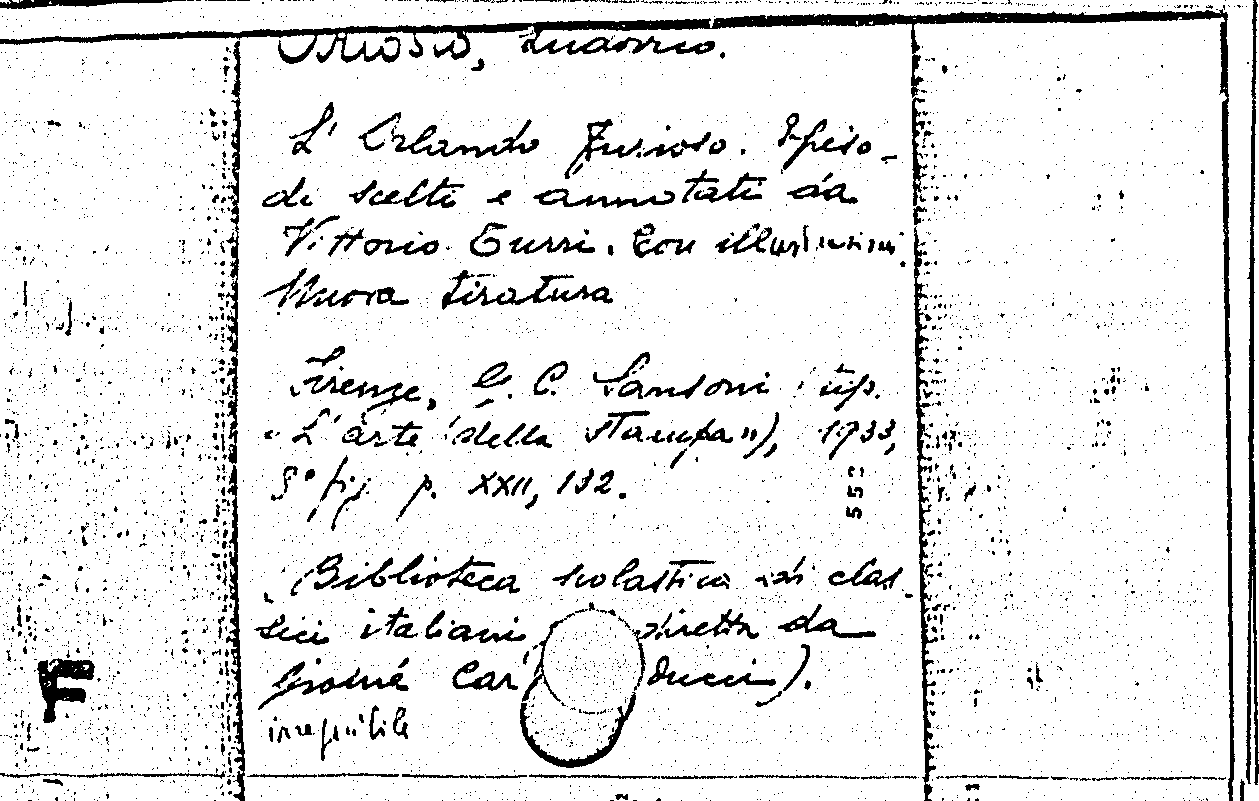 Ariosto, Ludovico.
L'Orlando Furioso. Episo-
di scelti e annotati da
Vittorio Turri. Con illustrazioni.
Nuova tiratura
Firenze, G. C. Sansoni tip.
"L'arte della Stampa"), 1933,
8° fig p. XXII, 132.
552
(Biblioteca scolastica di clas-
sici italiani, diretta da
Giosuè Carducci).
F
irreperibile